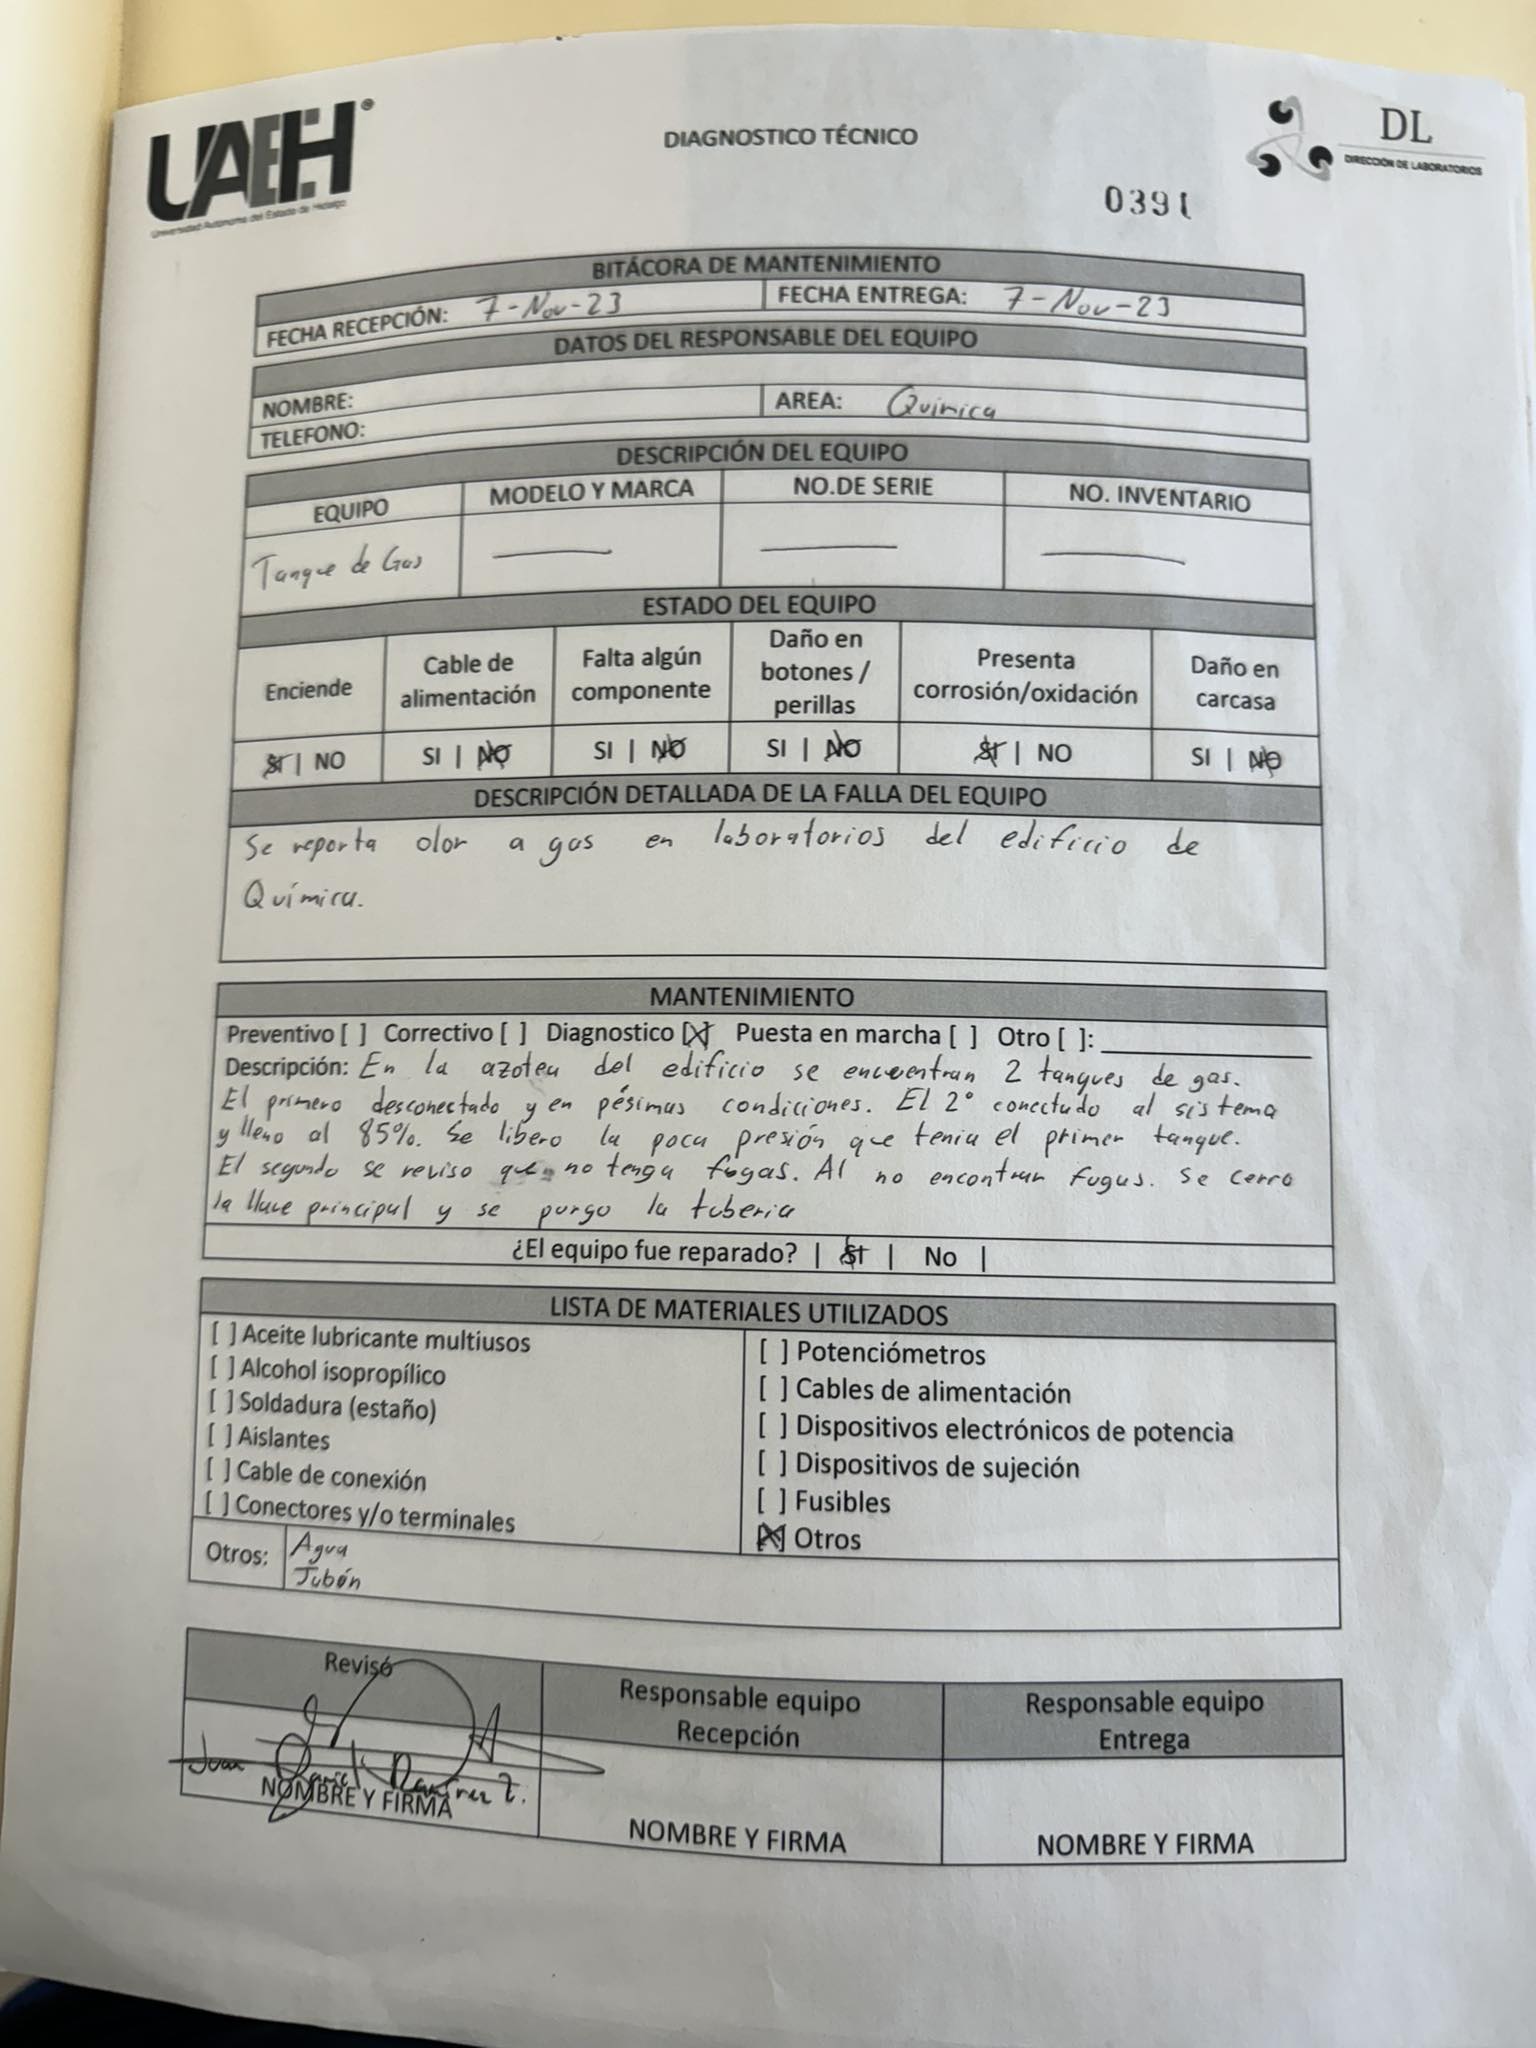 UAEH®
Universidad Autónoma del Estado de Hidalgo
DIAGNOSTICO TÉCNICO
DL
DIRECCIÓN DE LABORATORIOS
0391
BITÁCORA DE MANTENIMIENTO
FECHA RECEPCIÓN: 7-Nov-23 FECHA ENTREGA: 7-Nov-23
DATOS DEL RESPONSABLE DEL EQUIPO
NOMBRE: AREA: Química
TELEFONO:
DESCRIPCIÓN DEL EQUIPO
EQUIPO MODELO Y MARCA NO.DE SERIE NO. INVENTARIO
Tanque de Gas
ESTADO DEL EQUIPO
Enciende Cable de alimentación Falta algún componente Daño en botones / perillas Presenta corrosión/oxidación Daño en carcasa
SI | NO SI | NO SI | NO SI | NO SI | NO SI | NO
DESCRIPCIÓN DETALLADA DE LA FALLA DEL EQUIPO
Se reporta olor a gas en laboratorios del edificio de
Química.
MANTENIMIENTO
Preventivo [ ] Correctivo [ ] Diagnostico [X] Puesta en marcha [ ] Otro [ ]:
Descripción: En la azotea del edificio se encuentran 2 tanques de gas.
El primero desconectado y en pésimas condiciones. El 2° conectado al sistema
y lleno al 85%. Se libero la poca presión que tenia el primer tanque.
El segundo se reviso que no tenga fugas. Al no encontrar fugas. se cerro
la llave principal y se purgo la tuberia
¿El equipo fue reparado? | SI | No |
LISTA DE MATERIALES UTILIZADOS
[ ] Aceite lubricante multiusos
[ ] Alcohol isopropílico
[ ] Soldadura (estaño)
[ ] Aislantes
[ ] Cable de conexión
[ ] Conectores y/o terminales
[ ] Potenciómetros
[ ] Cables de alimentación
[ ] Dispositivos electrónicos de potencia
[ ] Dispositivos de sujeción
[ ] Fusibles
[X] Otros
Otros: Agua
Jabón
Revisó
Juan Daniel Ramírez Z.
NOMBRE Y FIRMA
Responsable equipo
Recepción
NOMBRE Y FIRMA
Responsable equipo
Entrega
NOMBRE Y FIRMA